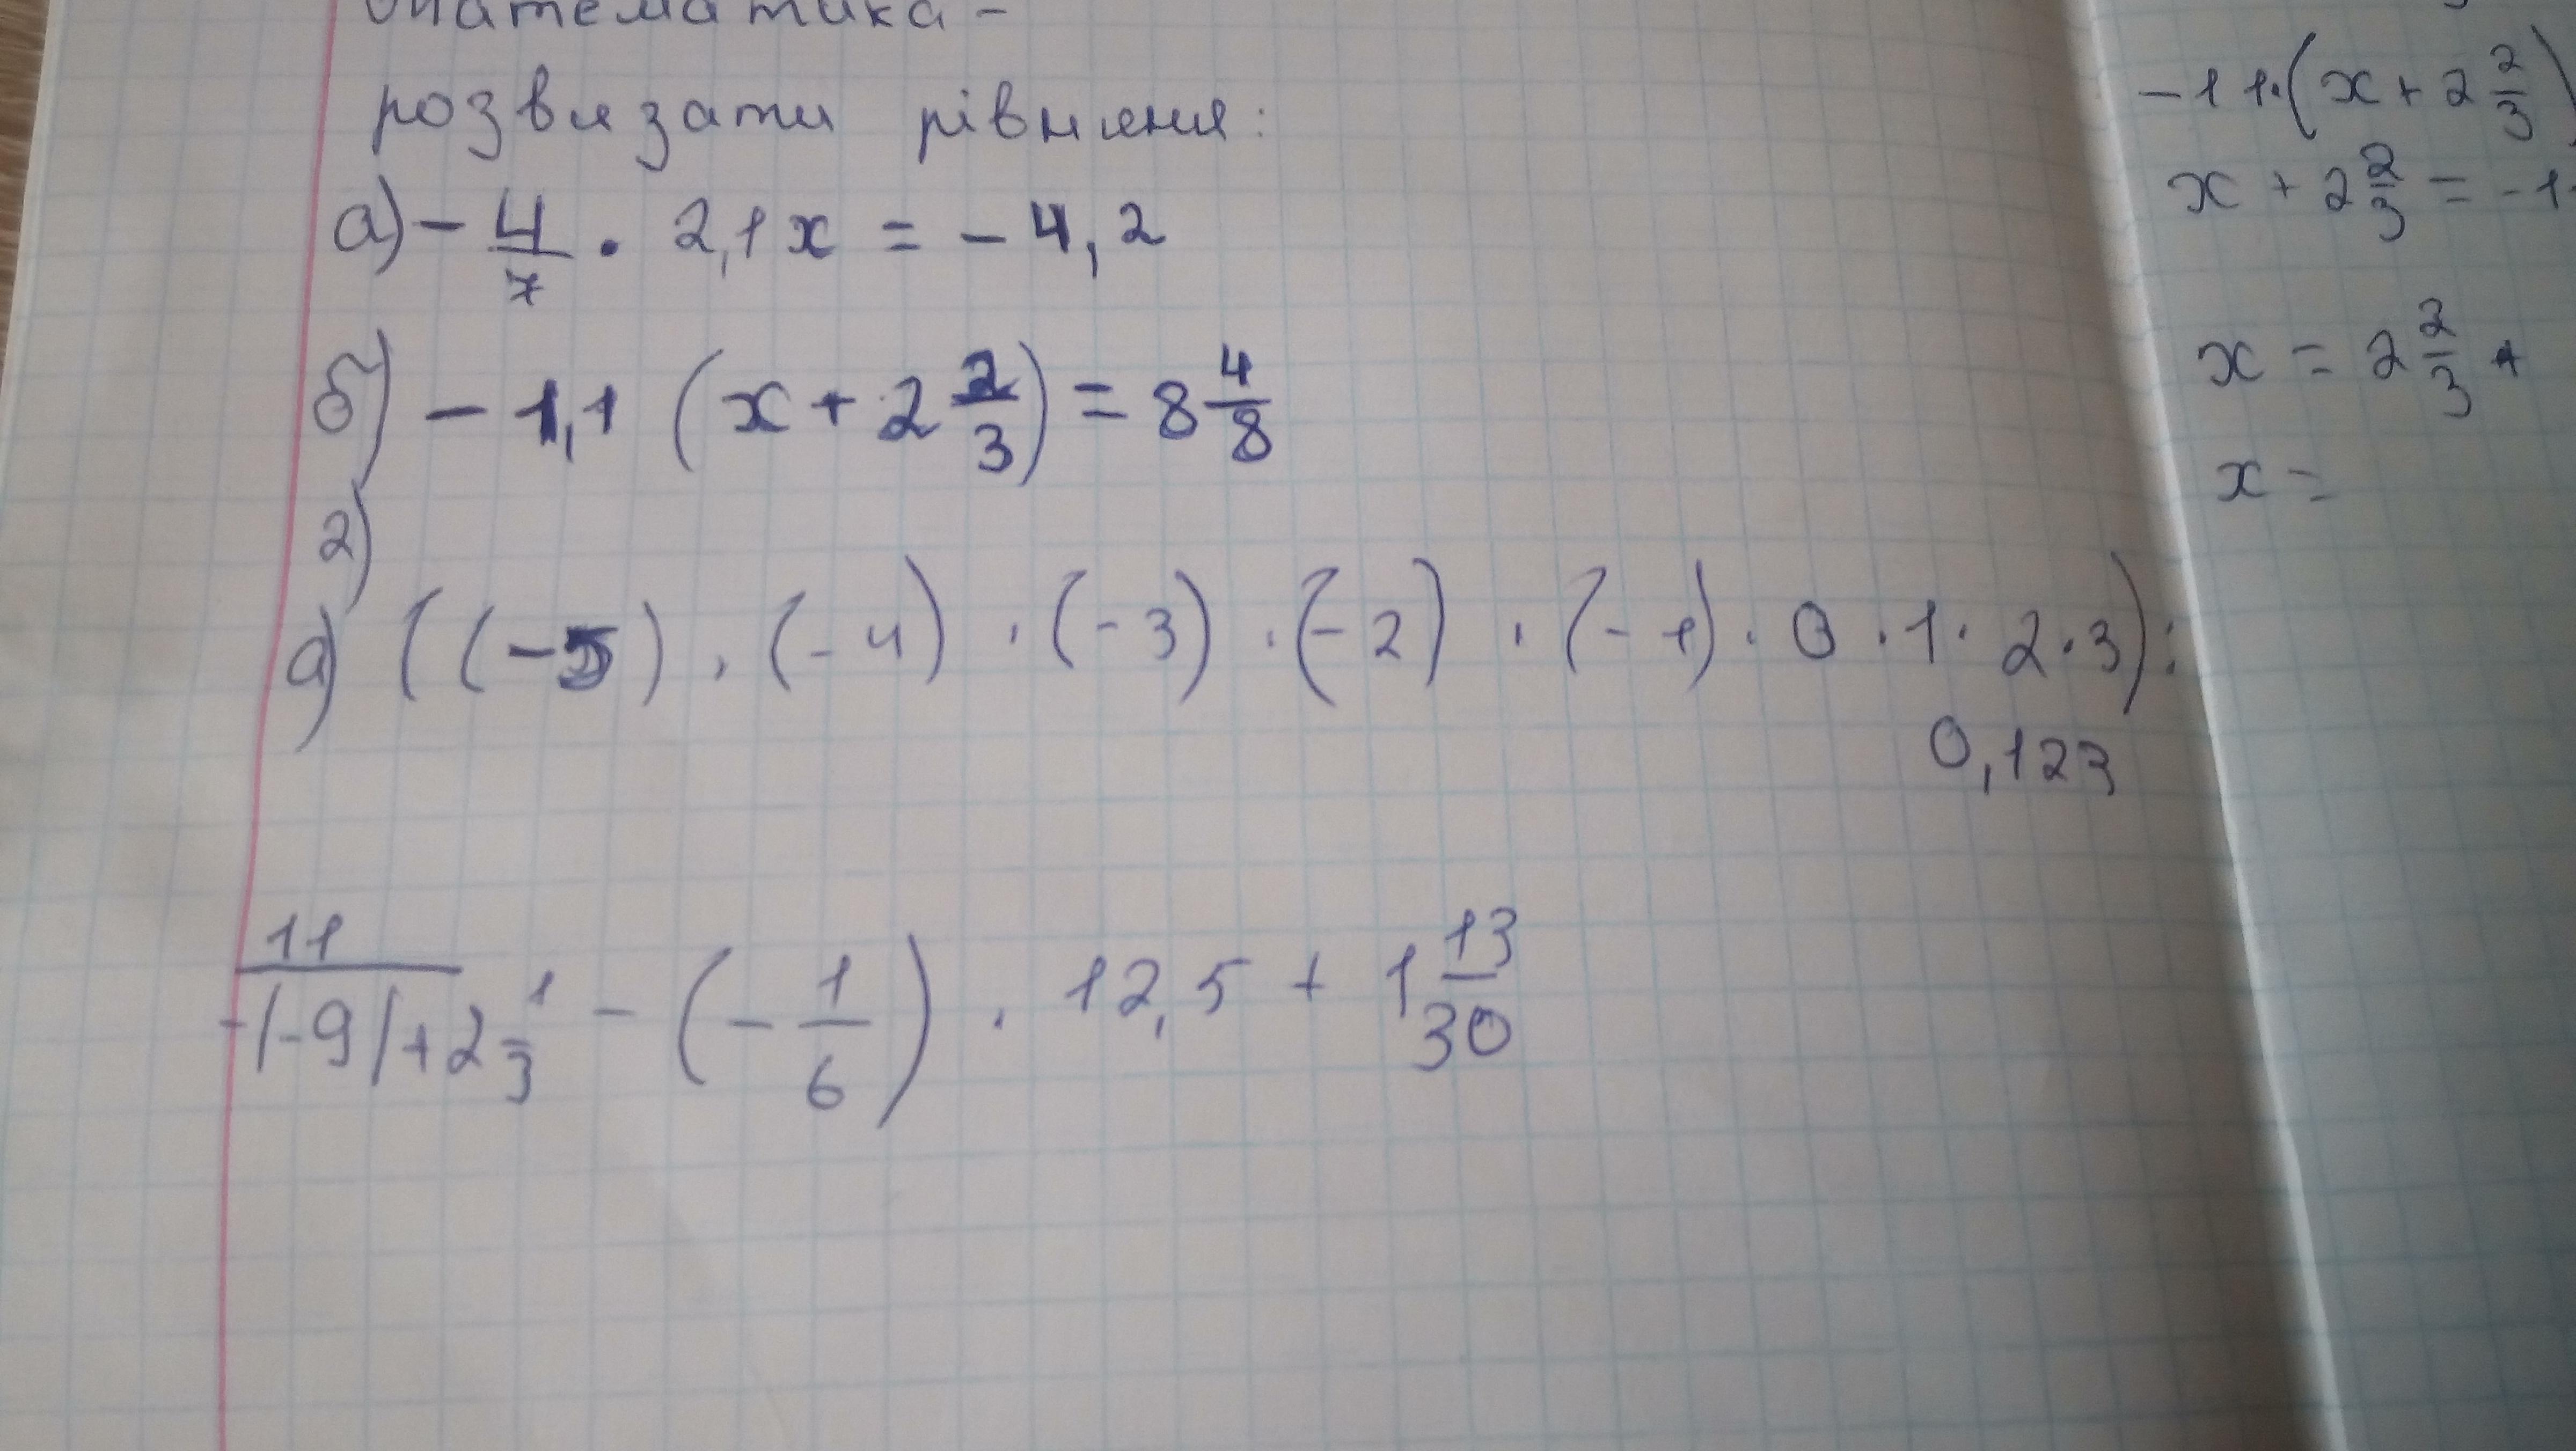 Математика -
розвязати рівняня:
а) - 4/7 · 2,1x = - 4,2
б) - 1,1 (x + 2 2/3) = 8 4/8
2)
а) ((-5) · (-4) · (-3) · (-2) · (-1) · 0 · 1 · 2 · 3) :
0,123
11/(-|-9|+2 1/3) - (- 1/6) · 12,5 + 1 13/30
-11·(x + 2 2/3)
x + 2 2/3 = -1
x = 2 2/3 +
x =